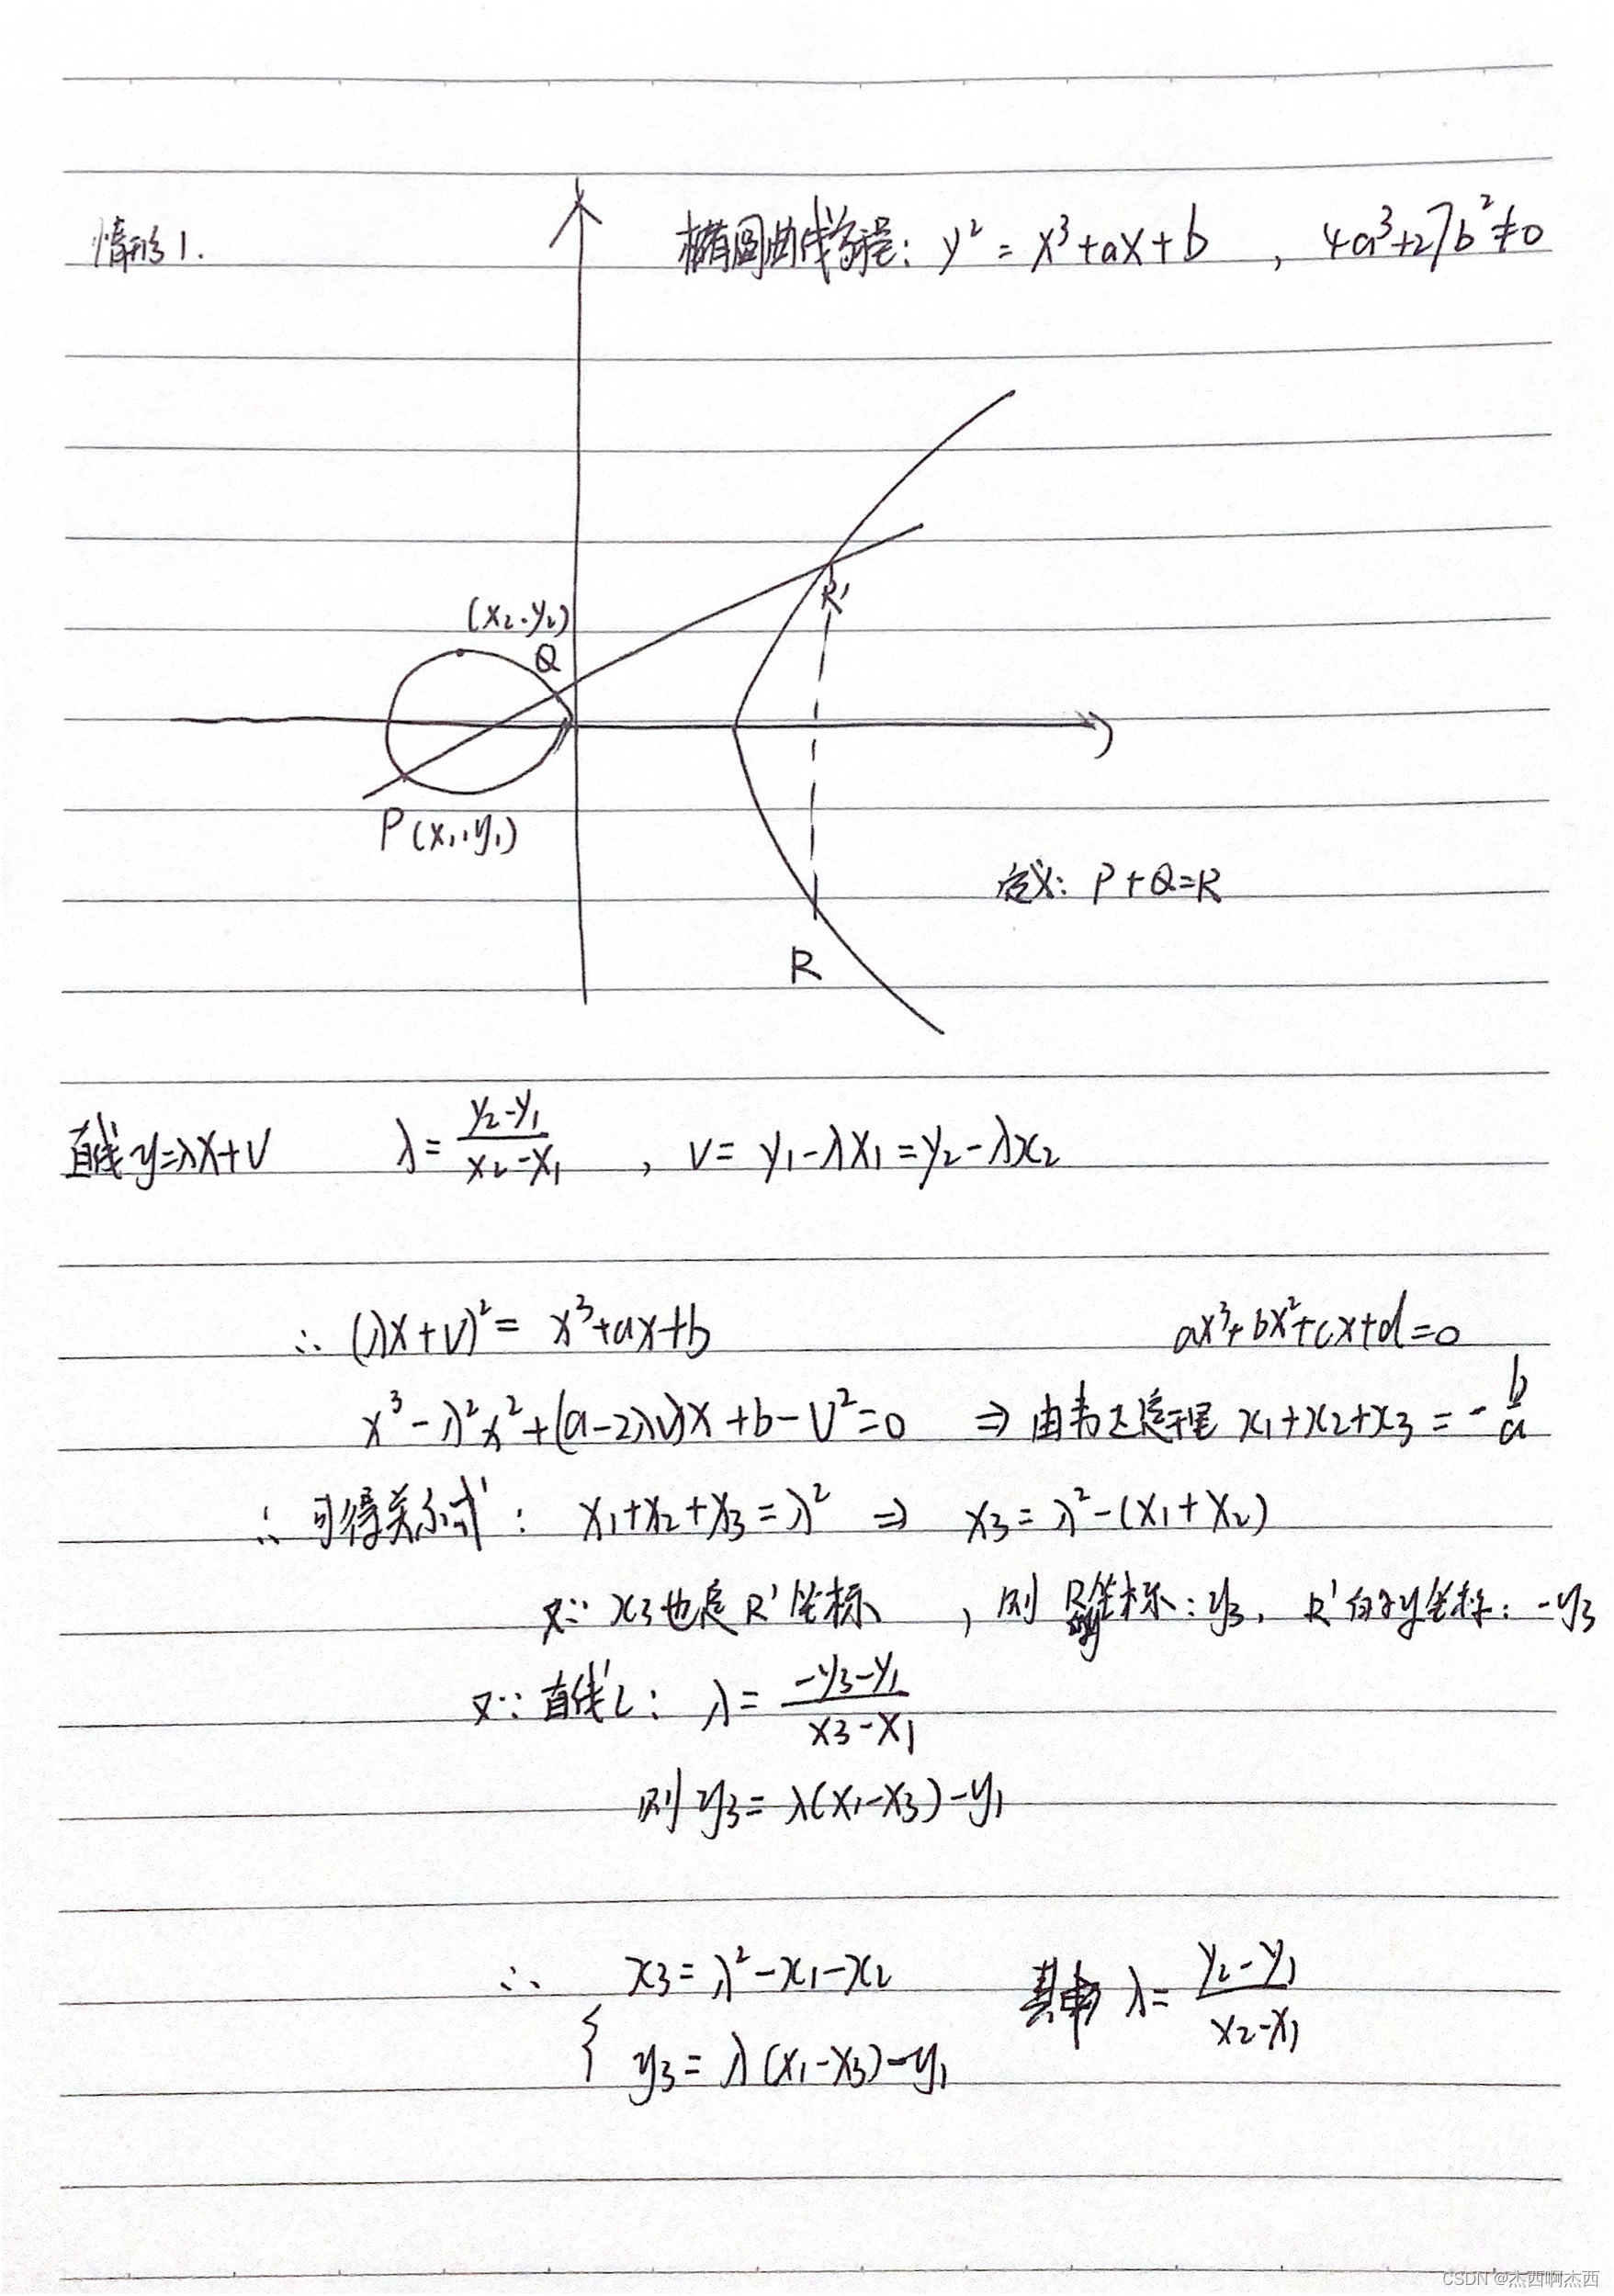 情形1.
椭圆曲线方程: y² = x³+ax+b , 4a³+27b²≠0
R'
(x₂.y₂)
Q
P(x₁,y₁)
定义: P+Q=R
R
直线y=λx+v λ= (y₂-y₁)/(x₂-x₁) , v= y₁-λx₁=y₂-λx₂
∴ (λx+v)²= x³+ax+b ax³+bx²+cx+d=0
x³-λ²x²+(a-2λv)x+b-v²=0 ⇒ 由韦达定理 x₁+x₂+x₃=-b/a
∴ 可得关系式: x₁+x₂+x₃=λ² ⇒ x₃=λ²-(x₁+x₂)
又∵ x₃也是R'坐标 , 则 R的y坐标: y₃, R'的y坐标: -y₃
又∵ 直线L: λ= (-y₃-y₁)/(x₃-x₁)
则 y₃= λ(x₁-x₃)-y₁
∴ { x₃=λ²-x₁-x₂ 其中 λ= (y₂-y₁)/(x₂-x₁)
y₃= λ(x₁-x₃)-y₁
CSDN @杰西啊杰西